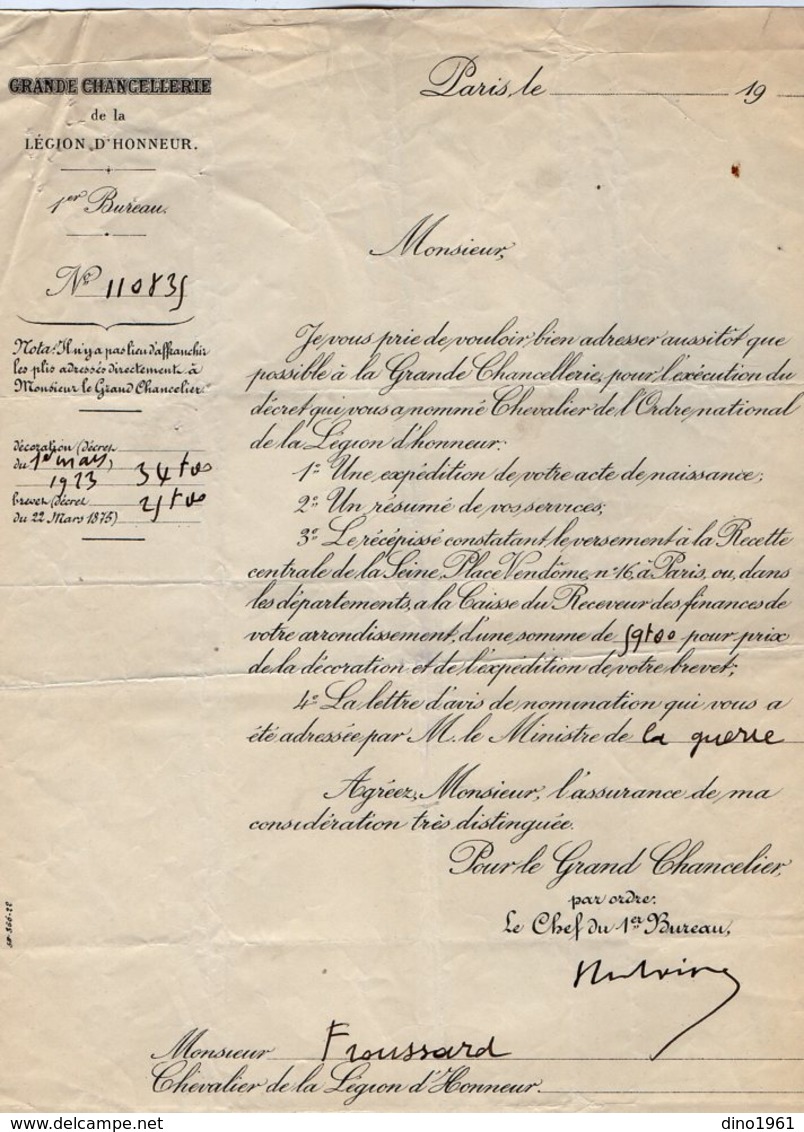 GRANDE CHANCELLERIE
de la
LÉGION D'HONNEUR.
1er Bureau.
No 110835
Nota: Il n'y a pas lieu d'affranchir
les plis adressés directement à
Monsieur le Grand Chancelier.
décoration (décret
du 1er mars
1923 34f00
brevet (décret 25f00
du 22 Mars 1875)
Paris, le 19
Monsieur,
Je vous prie de vouloir bien adresser aussitôt que
possible à la Grande Chancellerie, pour l'exécution du
décret qui vous a nommé Chevalier de l'Ordre national
de la Légion d'honneur:
1o Une expédition de votre acte de naissance;
2o Un résumé de vos services;
3o Le récépissé constatant le versement à la Recette
centrale de la Seine, Place Vendôme, no 16, à Paris, ou, dans
les départements, a la Caisse du Receveur des finances de
votre arrondissement, d'une somme de 59f00 pour prix
de la décoration et de l'expédition de votre brevet;
4o La lettre d'avis de nomination qui vous a
été adressée par M. le Ministre de la guerre
Agréez, Monsieur, l'assurance de ma
considération très distinguée.
Pour le Grand Chancelier,
par ordre:
Le Chef du 1er Bureau,
Monsieur Froussard
Chevalier de la Légion d'Honneur.
dino1961